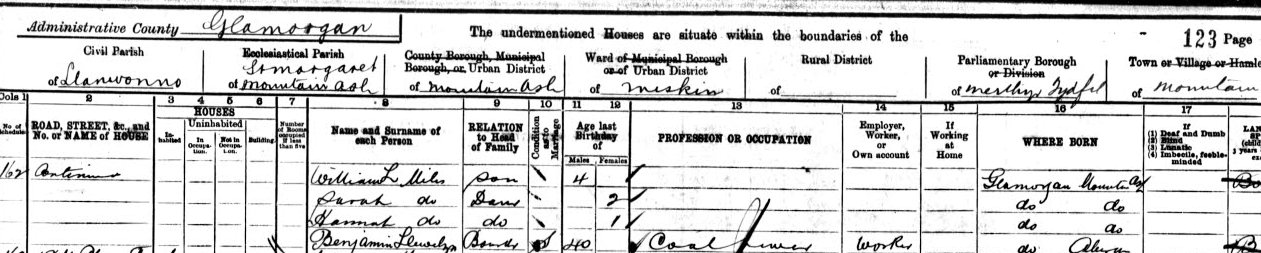 Administrative County Glamorgan
The undermentioned Houses are situate within the boundaries of the
123 Page
Civil Parish
of Llanwonno
Ecclesiastical Parish
St margaret
of Mountain Ash
County Borough, Municipal
Borough, or Urban District
of Mountain Ash
Ward of Municipal Borough
or of Urban District
of Miskin
Rural District
of
Parliamentary Borough
or Division
of Merthyr Tydfil
Town or Village or Hamle
of Mountain
Cols 1 2 3 4 5 6 7 8 9 10 11 12 13 14 15 16 17
No of Schedule
ROAD, STREET, &c., and No. or NAME of HOUSE
HOUSES
In-habited
Uninhabited
In Occupa-tion.
Not in Occupa-tion.
Building
Number of Rooms occupied if less than five
Name and Surname of each Person
RELATION to Head of Family
Condition as to Marriage
Age last Birthday of
Males Females
PROFESSION OR OCCUPATION
Employer, Worker, or Own account
If Working at Home
WHERE BORN
If
(1) Deaf and Dumb
(2) Blind
(3) Lunatic
(4) Imbecile, feeble-minded
162 Continued William L Miles son 4 Glamorgan Mountain Ash
Sarah do Daur 2 do do
Hannah do do 1 do do
Benjamin Llewelyn Boarder S 40 Coal Hewer Worker do